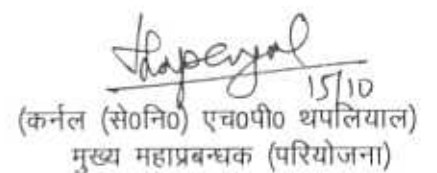 Thapliyal
15/10
(कर्नल (से०नि०) एच०पी० थपलियाल)
मुख्य महाप्रबन्धक (परियोजना)